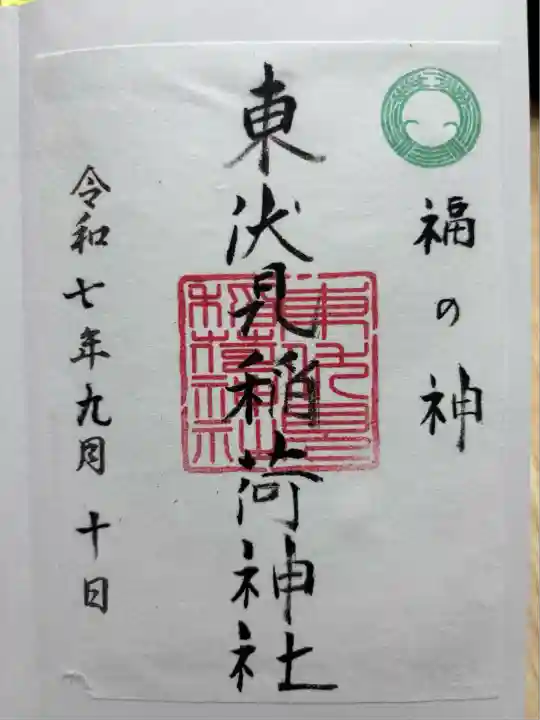 福の神
東伏見稲荷神社
令和七年九月十日